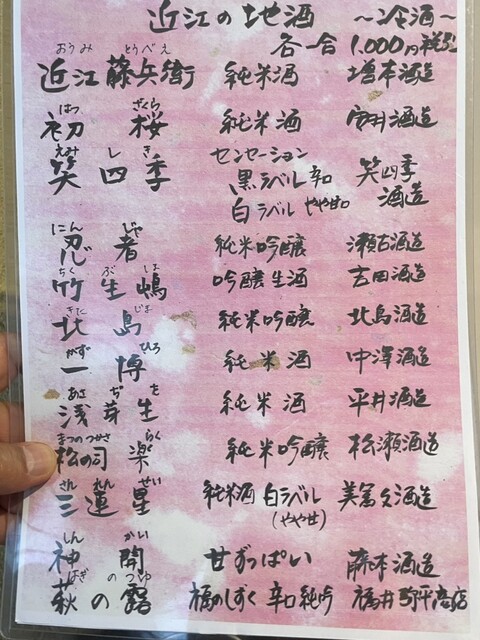 近江の地酒 〜冷酒〜
各一合 1,000円税別
おうみ とうべえ
近江 藤兵衛 純米酒 増本酒造
はつ ざくら
初桜 純米酒 安井酒造
えみ し き
笑四季 センセーション
黒ラベル 辛口 笑四季
白ラベル やや甘口 酒造
にん じゃ
忍者 純米吟醸 瀬古酒造
ちく ぶ しま
竹生嶋 吟醸生酒 吉田酒造
きた じま
北島 純米吟醸 北島酒造
かず ひろ
一博 純米酒 中澤酒造
あさ ぢ を
浅茅生 純米酒 平井酒造
まつのつかさ らく
松の司 楽 純米吟醸 松瀬酒造
さん れん せい
三連星 純米酒 白ラベル 美冨久酒造
(やや甘)
しん かい
神開 甘ずっぱい 藤本酒造
はぎ のつゆ
萩の露 福のしずく 辛口純吟 福井弥平商店